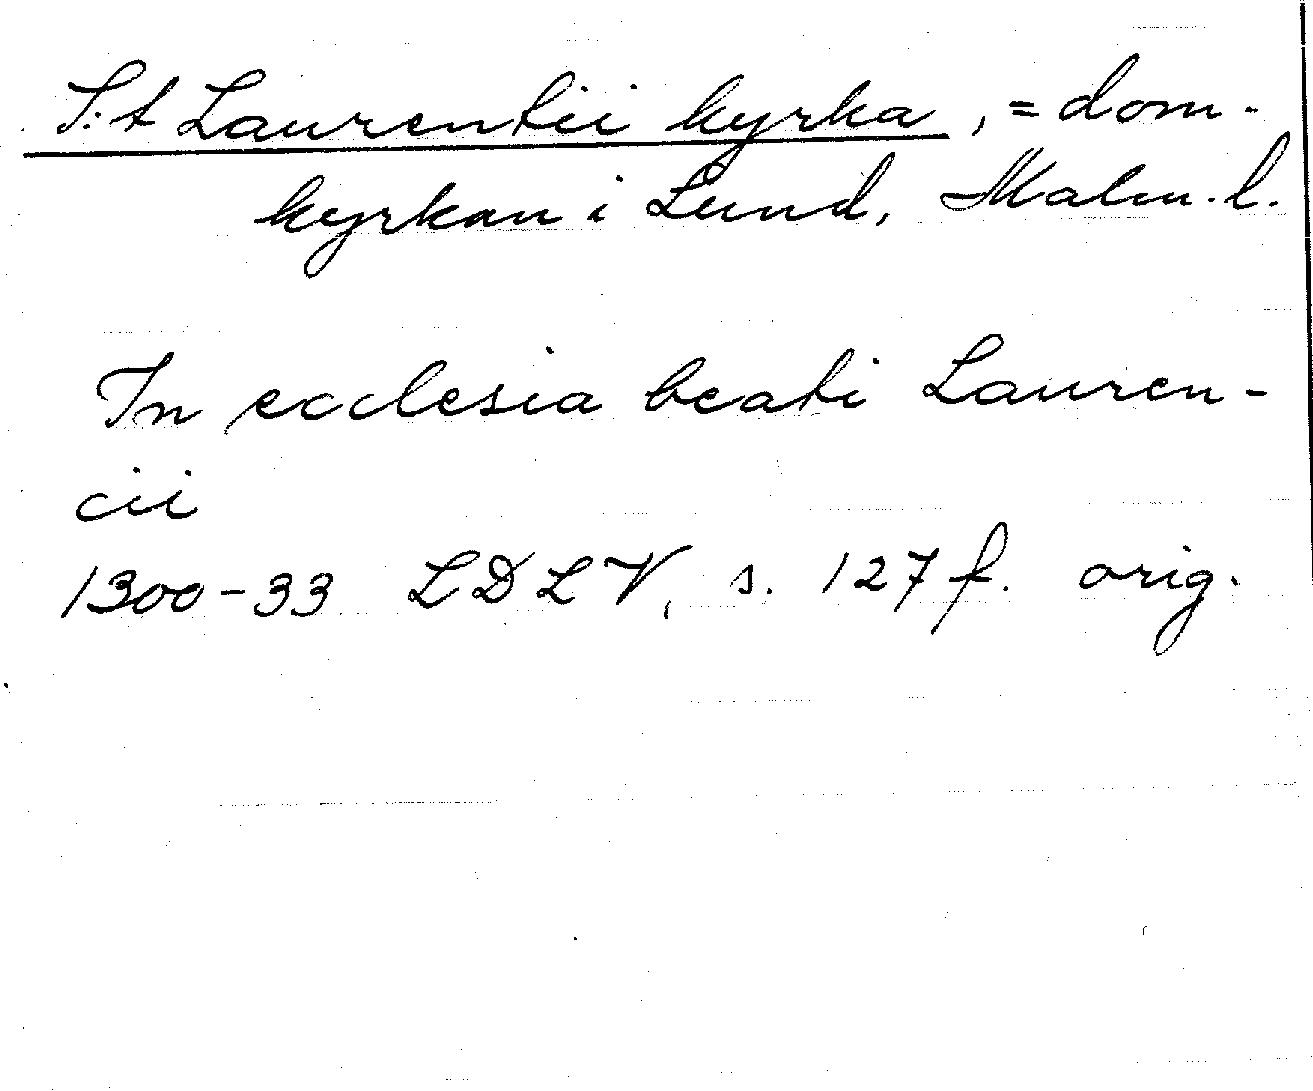 S:t Laurentii kyrka, = dom-
kyrkan i Lund, Malm. l.
In ecclesia beati Lauren-
cii
1300-33 LDLV, s. 127 f. orig.